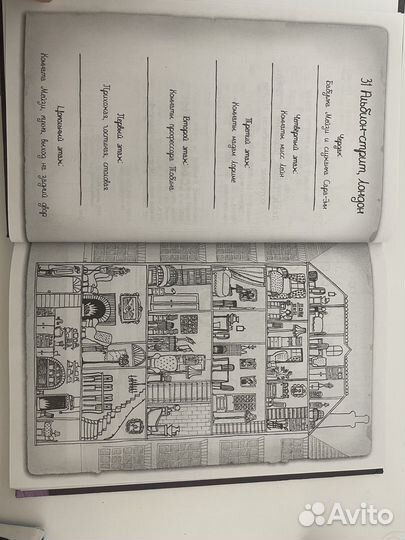 31 Альбион-стрит, Лондон
Чердак:
Бабушка Мейзи и служанка Сара-Энн
Четвёртый этаж:
Комнаты мисс Лейн
Третий этаж:
Комнаты мадам
Второй этаж:
Комнаты профессора Тобина
Первый этаж:
Прихожая, гостиная, столовая
Цокольный этаж:
Комната Мейзи, кухня, выход на задний двор
Avito